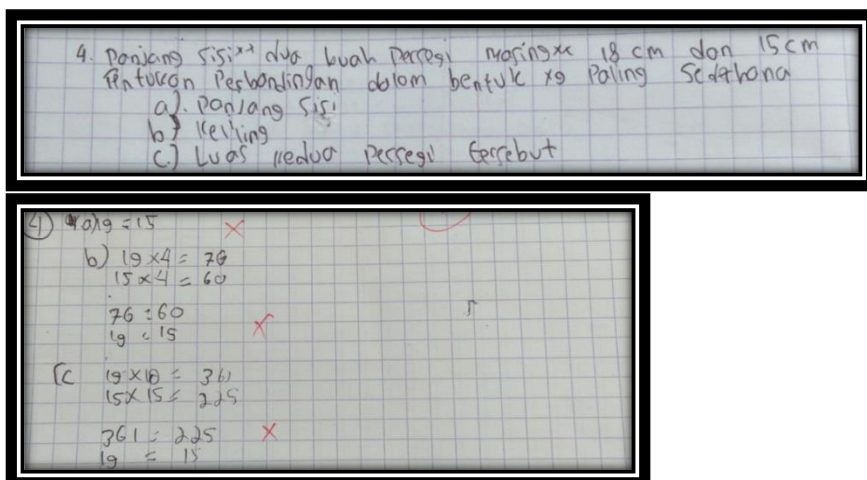 4. Panjang sisi×× dua buah persegi masing×× 18 cm dan 15 cm
Tentukan Perbandingan dalam bentuk yg Paling Sederhana
a). Panjang sisi
b) Keliling
c.) Luas kedua persegi tersebut
4 a) 19 = 15 ×
b) 19 × 4 = 76
15 × 4 = 60
76 : 60
19 : 15 ×
c 19 × 19 = 361
15 × 15 = 225
361 : 225 ×
19 = 15